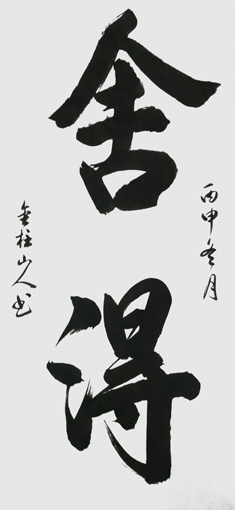 舍得
丙申冬月
金柱山人书